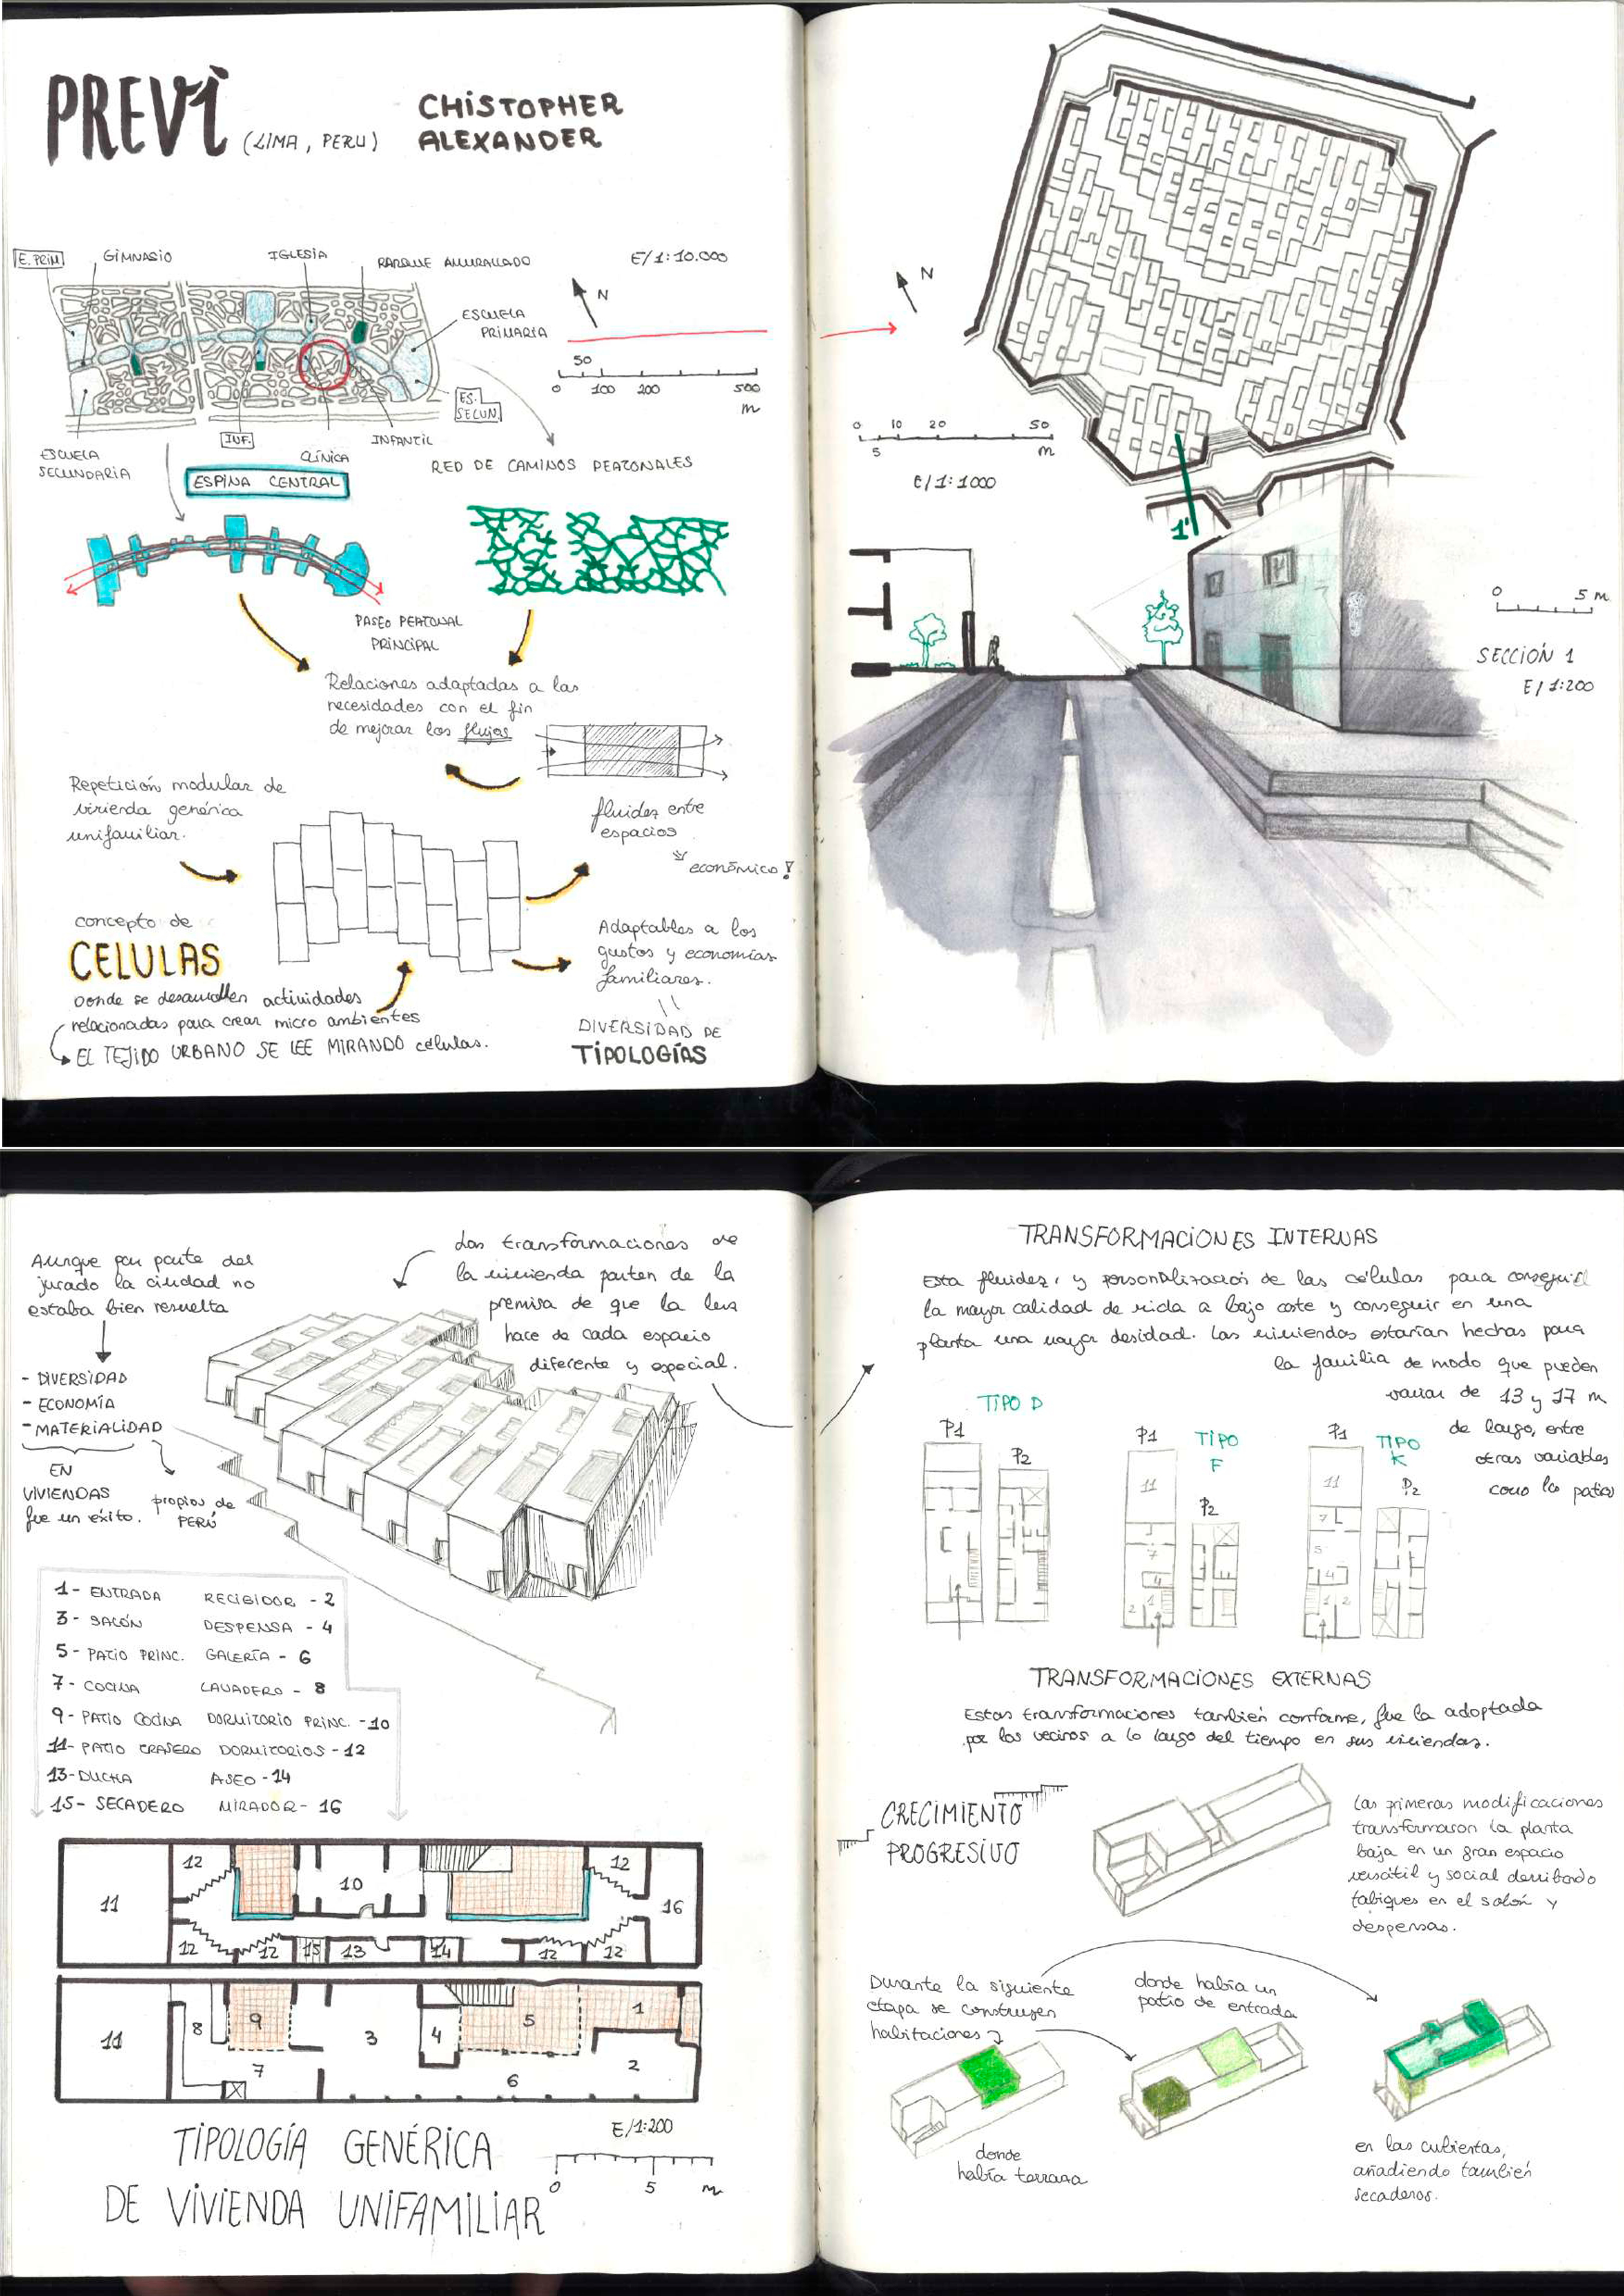 PREVI
(LIMA, PERU)
CHISTOPHER
ALEXANDER
E. PRIM
GIMNASIO
IGLESIA
PARQUE AMURALLADO
E/1:10.000
N
ESCUELA
PRIMARIA
50
0 100 200 500
m
ES.
SECUN.
INF.
CLÍNICA
INFANTIL
ESCUELA
SECUNDARIA
ESPINA CENTRAL
RED DE CAMINOS PEATONALES
PASEO PEATONAL
PRINCIPAL
Relaciones adaptadas a las
necesidades con el fin
de mejorar los flujos
Repetición modular de
vivienda genérica
unifamiliar.
fluidez entre
espacios
económico!
concepto de
CELULAS
Donde se desarrollen actividades
relacionadas para crear micro ambientes
EL TEJIDO URBANO SE LEE MIRANDO células.
Adaptables a los
gustos y economías
familiares.
DIVERSIDAD DE
TIPOLOGÍAS
N
0 10 20 50
5 m
E/1:1000
1'
0 5 m
SECCIÓN 1
E/1:200
Aunque por parte del
jurado la ciudad no
estaba bien resuelta
- DIVERSIDAD
- ECONOMÍA
- MATERIALIDAD
EN
VIVIENDAS
fue un éxito.
propios de
PERÚ
Las transformaciones de
la vivienda parten de la
premisa de que la luz
hace de cada espacio
diferente y especial.
1- ENTRADA RECIBIDOR - 2
3- SALÓN DESPENSA - 4
5- PATIO PRINC. GALERÍA - 6
7- COCINA LAVADERO - 8
9- PATIO COCINA DORMITORIO PRINC. -10
11- PATIO TRASERO DORMITORIOS -12
13- DUCHA ASEO -14
15- SECADERO MIRADOR- 16
12 12
11 10 16
12 12 15 13 14 12 12
11 8 9 3 4 5 1
7 6 2
TIPOLOGÍA GENÉRICA
DE VIVIENDA UNIFAMILIAR
E/1:200
0 5 m
TRANSFORMACIONES INTERNAS
Esta fluidez, y personalización de las células para conseguir
la mayor calidad de vida a bajo coste y conseguir en una
planta una mayor desidad. Las viviendas estarían hechas para
la familia de modo que pueden
variar de 13 y 17 m
de largo, entre
otras variables
como los patios
TIPO D
P1
P2
P1
TIPO
F
P2
11
7
4
2 1
P1
TIPO
K
P2
11
7
5
4
1 2
TRANSFORMACIONES EXTERNAS
Estas transformaciones también conforme, fue la adoptada
por los vecinos a lo largo del tiempo en sus viviendas.
CRECIMIENTO
PROGRESIVO
Las primeras modificaciones
transformaron la planta
baja en un gran espacio
versátil y social derribando
tabiques en el salón y
despensas.
Durante la siguiente
etapa se construyen
habitaciones
donde había un
patio de entrada
donde
había terraza
en las cubiertas,
añadiendo también
secaderos.